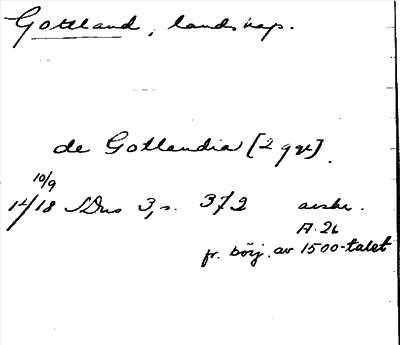 Gottland, landskap.
de Gotlandia [2 ggr].
10/9
1418 SDns 3, s. 372 avskr.
A 26
fr. börj. av 1500-talet